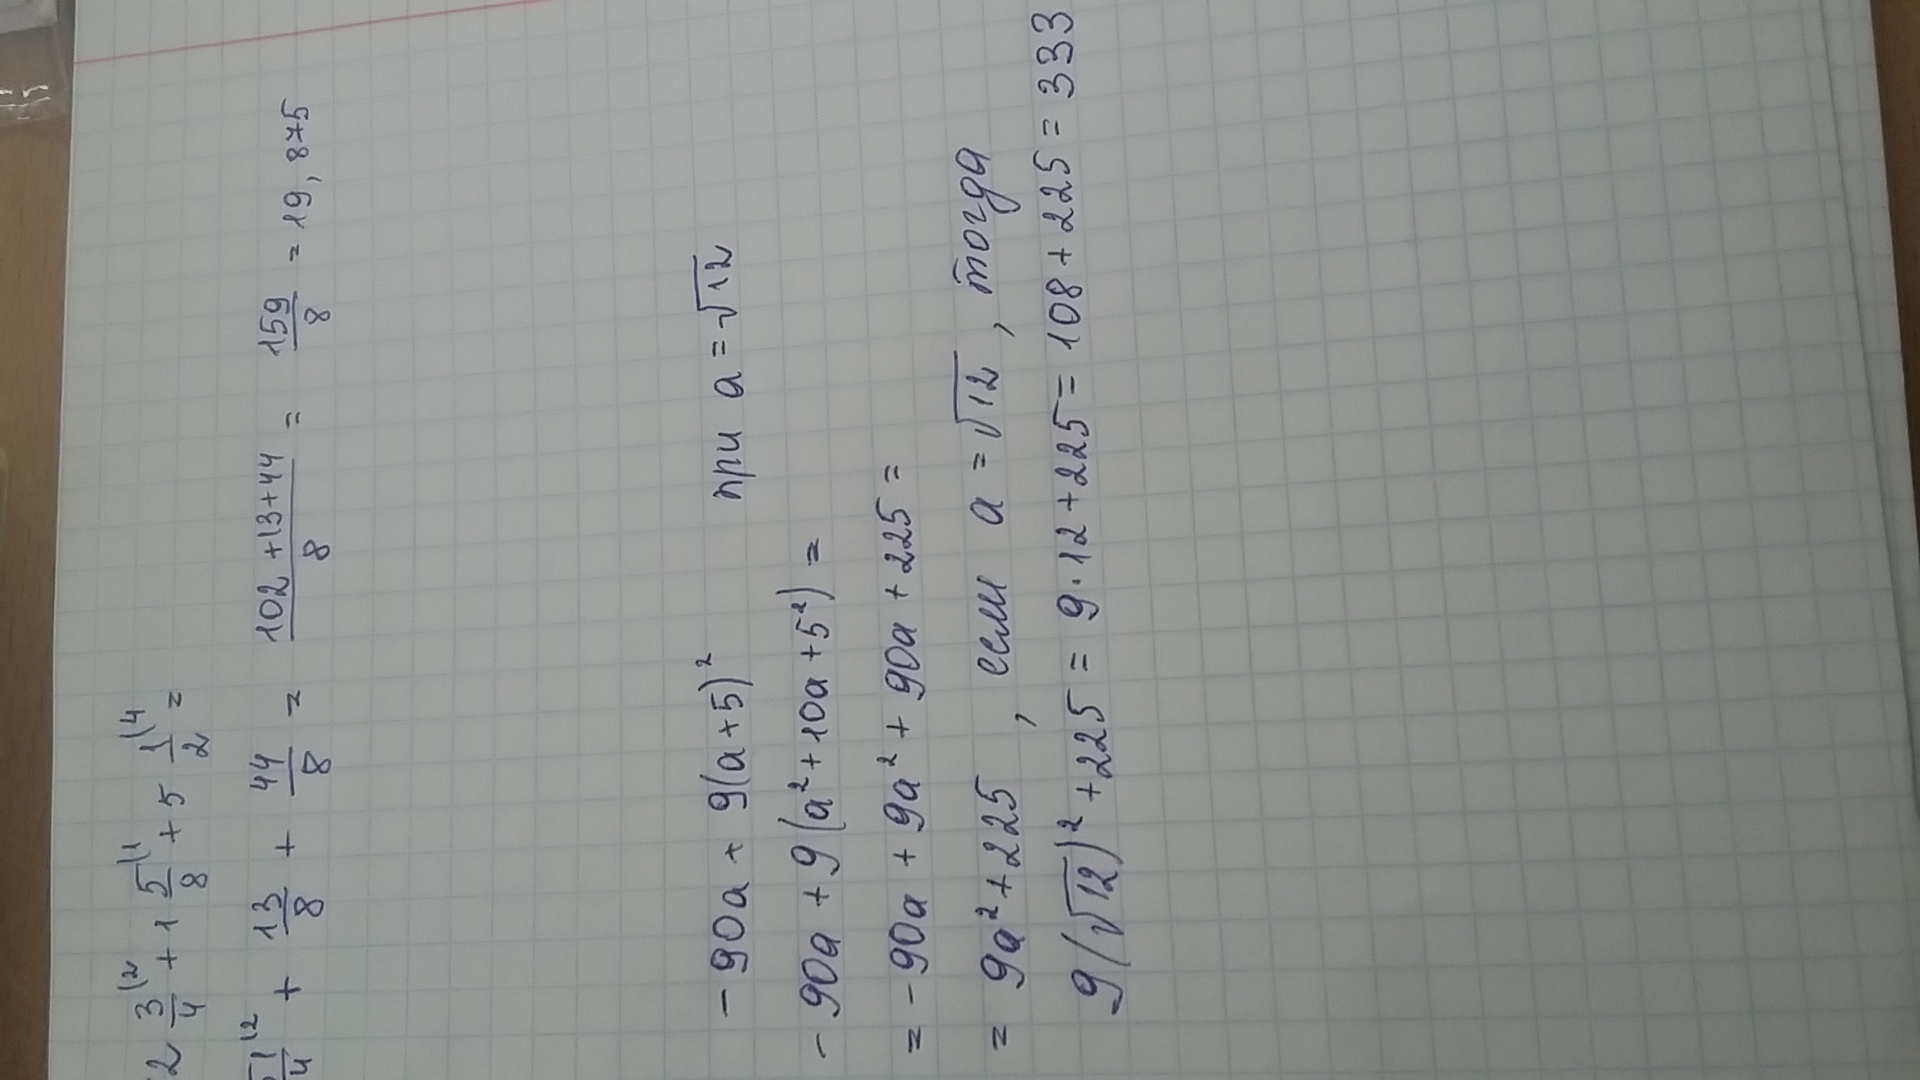 2 3/4 (2 + 1 5/8 (1 + 5 1/2 (4 =
51/4 (2 + 13/8 + 44/8 = (102+13+44)/8 = 159/8 = 19,875
- 90a + 9(a+5)² при a = √12
- 90a + 9(a² + 10a + 5²) =
= - 90a + 9a² + 90a + 225 =
= 9a² + 225 , если a = √12 , тогда
9(√12)² + 225 = 9·12 + 225 = 108 + 225 = 333